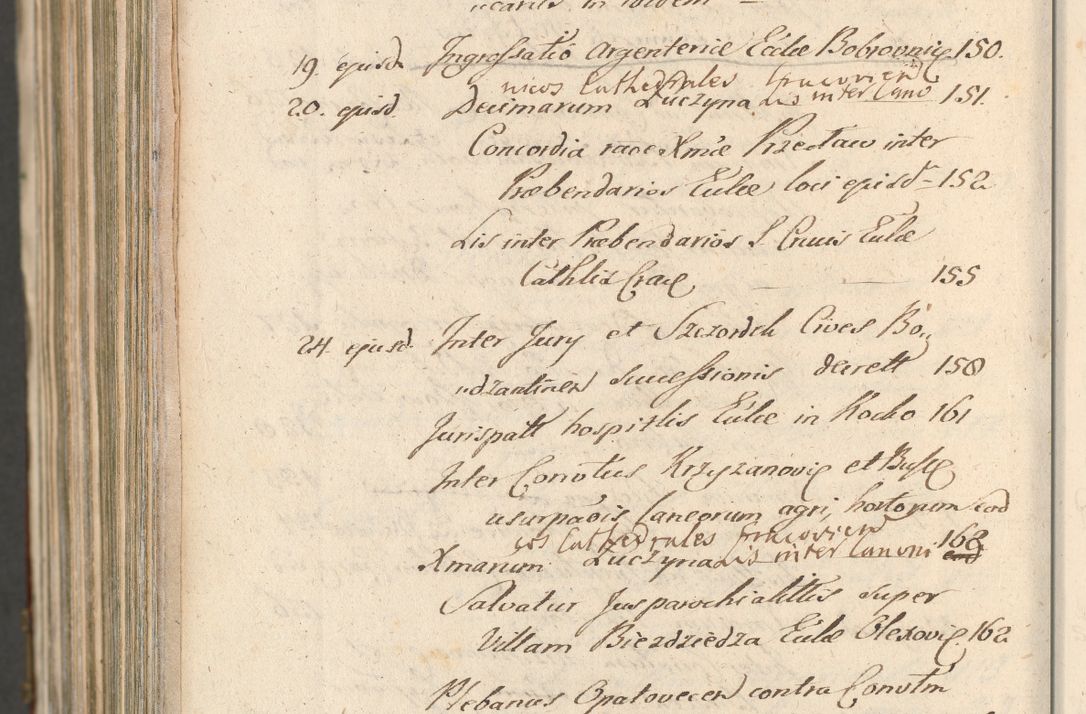 19. ejusd. Ingrossatio Argenteriæ Ecclæ Bobrovniẹ 150.
nicos Cathedrales Cracovien
20. ejusd. Decimarum Łuczyna Lis inter Cano 151.
Concordia race Xmæ Przecław inter
Præbendarios Eccles loci ejusd – 152
Lis inter Præbendarios S Crucis Ecclæ
Cathlis Crac 155
24. ejusd. Inter Jury et Szczordch Cives Bo„
„dzantinen successionis decrett 158
Jurispatt hospitlis Ecclæ in Kocko 161
Inter Convtus Krzyzanovie et Busc
usurpaois laneorum agri, hortorum eod
cos Cathedrales Cracovien
Xmarum Łuczyna Lis inter Canoni 162
Salvatur Jus parochialittis super
Villam Biezdziedza Ecclæ Olexovie 162
Plebanus Opatovecen contra Convtm